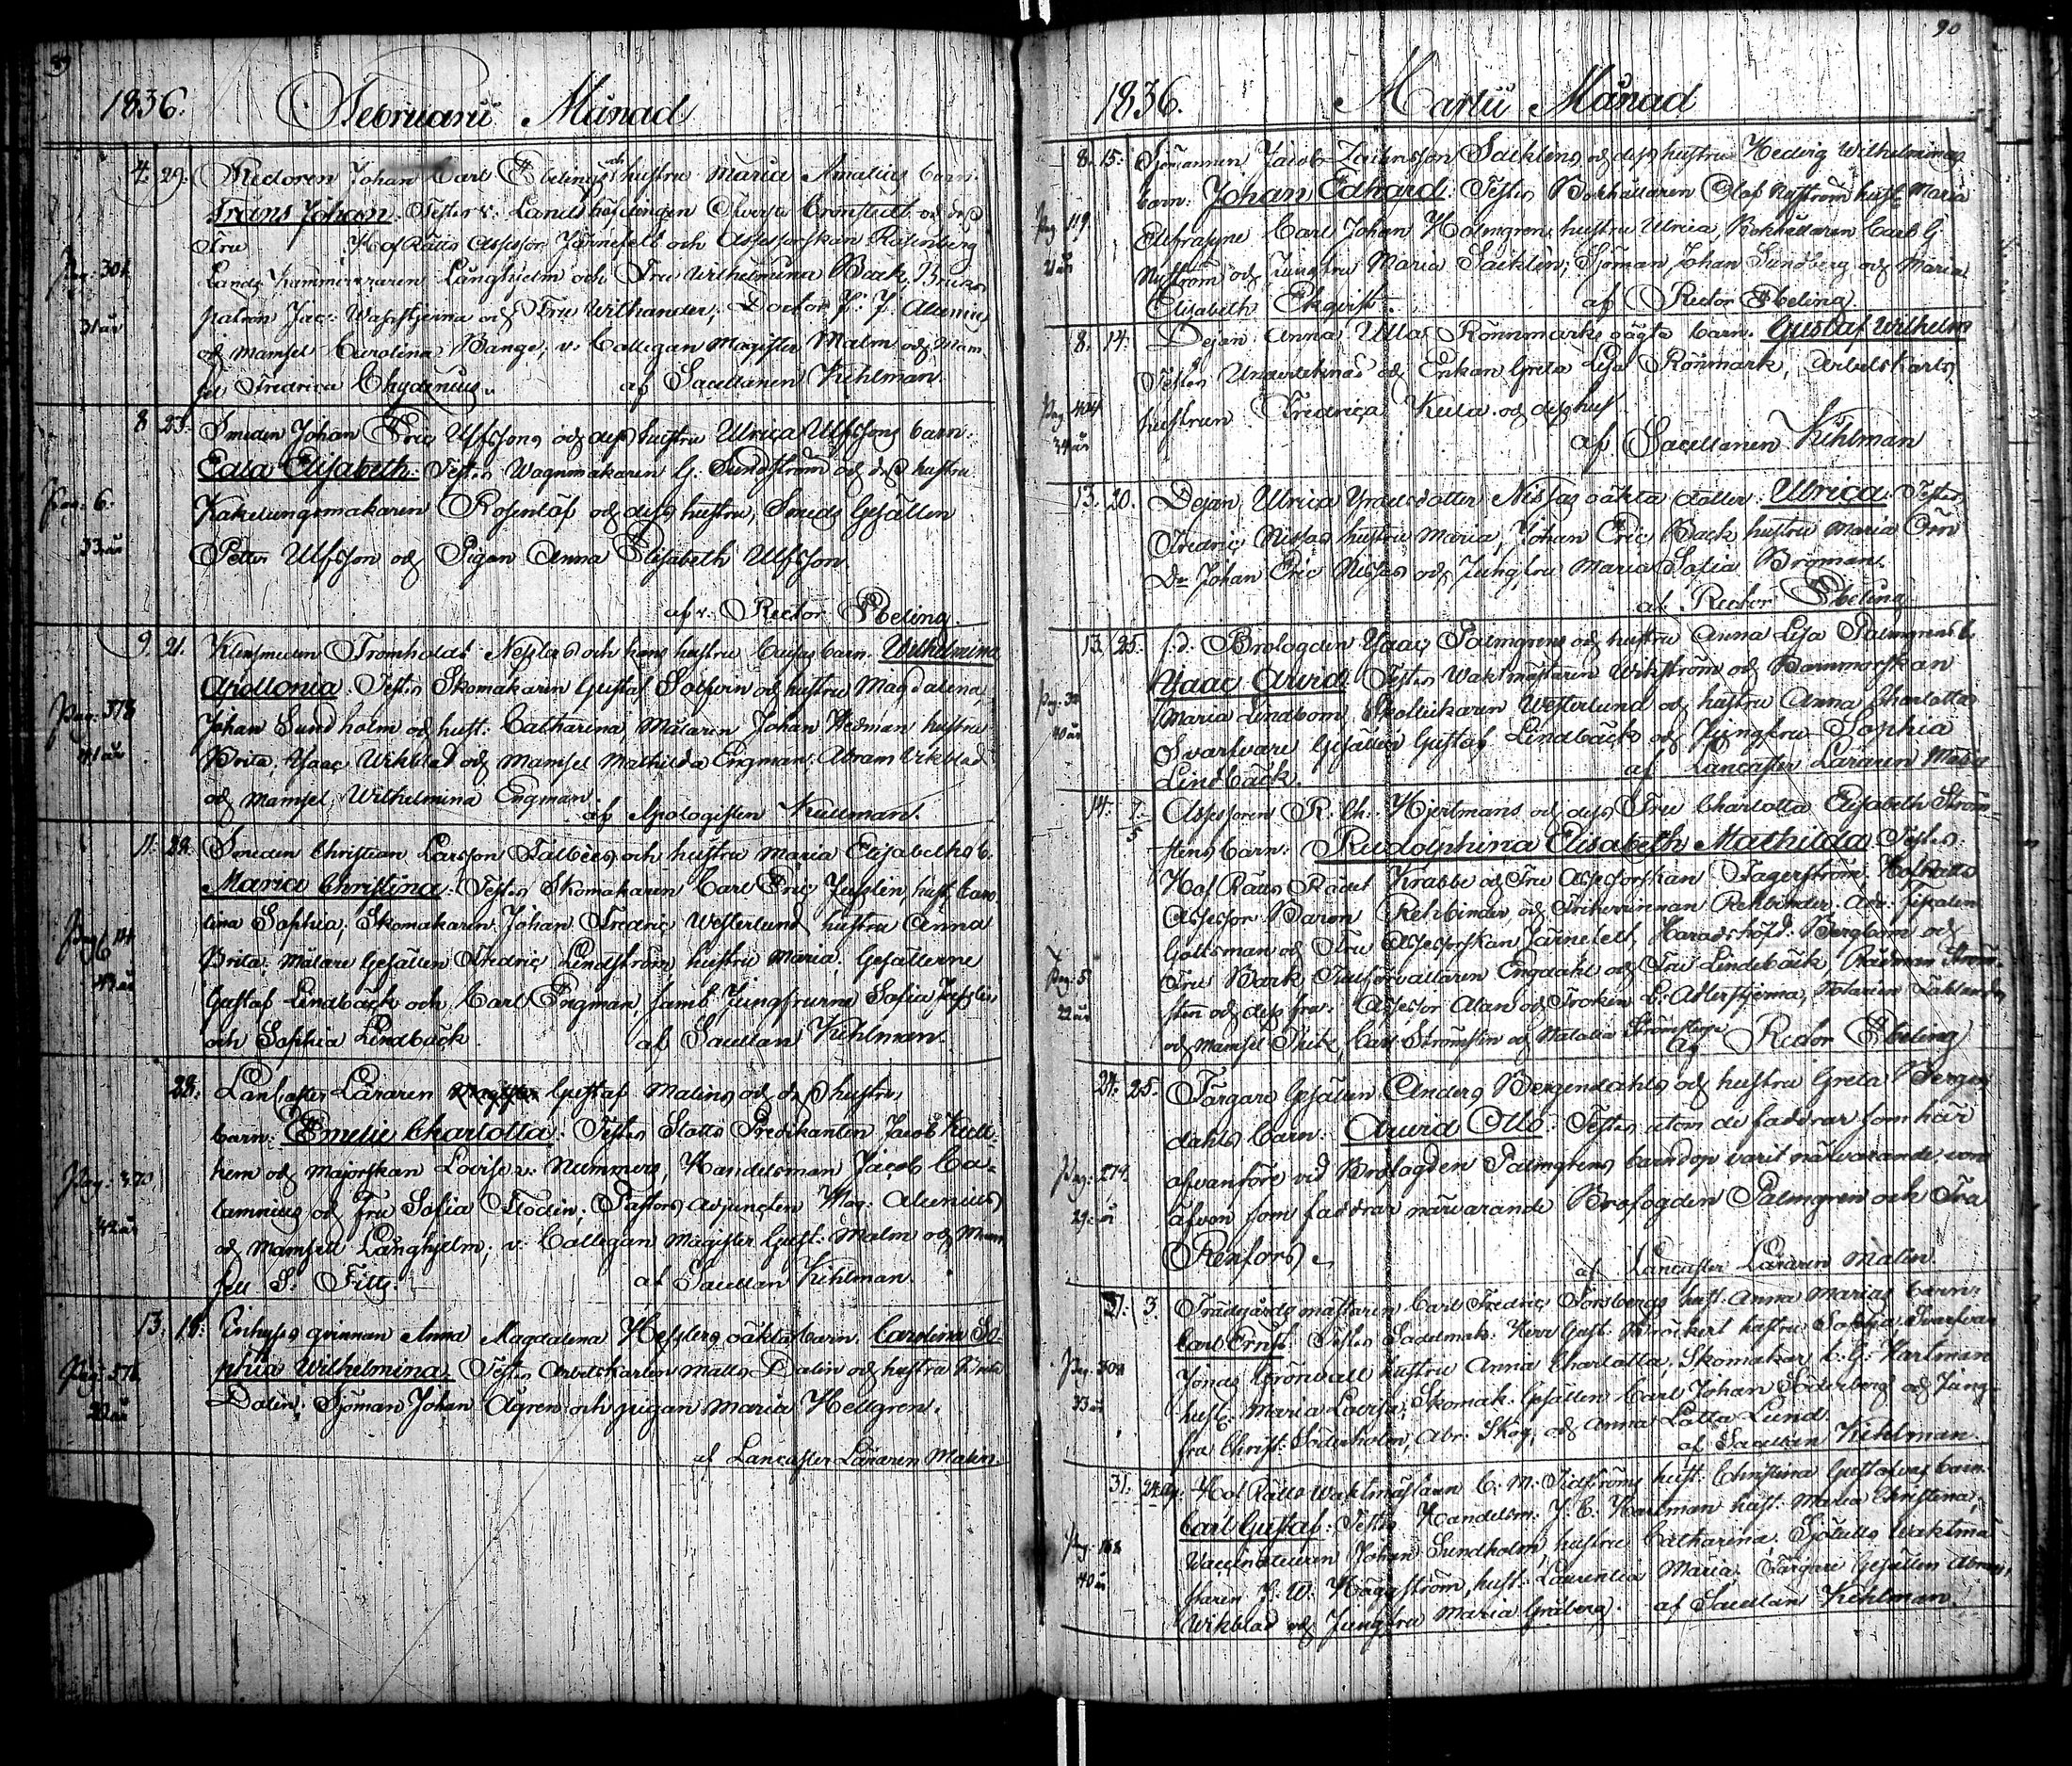 89
1836. Februarii Månad
4. 29. Rectoren Johan Carl Ebelings och hustru Maria Amalias barn
Frans Johan. Testes v. Landshöfdingen Cronstedt och dess
Fru HofRätts Assessor Järnefelt och Assessorskan Rosenberg
Pag: 301 Lands Kammereraren Långhjelm och Fru Wilhelmina Back, Bruks
31 år patron Jac: Wasastjerna och Fru Wilhander, Doctor J: J. Alcenius
och Mamsel Carolina Bange, v. Collegan Magister Malm och Mam-
sel Fredrica Chydenius. af Sacellanen Kihlman.
8 23. Smeden Johan Eric Ulfssons och dess hustru Ulrica Ulfssons barn:
Edla Elisabeth. Testes Wagnmakaren G. Sundström och dess hustru
Pag: 6. Kakelungsmakaren Rosenlöf och dess hustru, Smeds Gesällen
33 år Petter Ulfsson och Pigan Anna Elisabeth Ulfsson.
af v. Rector Ebeling.
9 21. Klensmeden Tromholdt Nesslers och hans hustru Cajsas barn. Wilhelmina
Apollonia. Testes Skomakaren Gustaf Solfvin och hustru Magdalena,
Pag: 378 Johan Sundholm och hust: Catharina, Målaren Johan Hedman hustru
41 år Brita, Isaac Wikblad och Mamsel Mathilda Engman, Abram Wikblad
och Mamsel Wilhelmina Engman. af Apologisten Kullman.
11. 29. Smeden Christian Larsson Talbergs och hustru Maria Elisabeths b.
Maria Christina. Testes Skomakaren Carl Eric Jusslin, hust. Caro-
lina Sophia, Skomakaren Johan Fredric Westerlund hustru Anna
Brita, Målare Gesällen Fredric Lindström hustru Maria, Gesällerne
Gustaf Lindbäck och Carl Engman, samt Jungfrurne Sofia Jusslin
och Sophia Lindbäck. af Sacellan Kihlman.
28. Lancaster Läraren Gustaf Malins och dess hustrus
barn: Emelie Charlotta. Testes Slotts Predikanten Jacob Kell-
hem och Majorskan Lovisa v. Nummers, Handelsman Jacob Ca-
Pag: 370 lamnius och Fru Sofia Flodin, Pastors Adjuncten Mag: Alcenius
42 år och Mamsell Långhjelm, v. Collegan Magister Gust: Malm och Mam
sell S. af Sacellan Kihlman.
13. 18. Enhyses qvinnan Anna Magdalena Hesslers oäkta barn. Carolina So-
phia Wilhelmina. Testes Arbetskarlen Matts Dalin och hustru
Dalin, Sjöman Johan Ågren och pigan Maria Hellgren.
af Lancaster Läraren Malin.
90
1836. Martii Månad
8. 15. Sjömannen Jacob Sacklens och dess hustru Hedvig Wilhelminas
barn: Johan Edvard. Testes Bokhållaren Olof Raström hust. Maria
Pag: 119 Carl Johan Holmgren, hustru Ulrica, Bokhållaren Carl G
21 år Nyström och Jungfru Maria Sacklen, Sjöman Johan Sundberg och Maria
Elisabeth Ekqvist. af Rector Ebeling
8. 14. Dejan Anna Ulla Rönnmarks oägta barn. Gustaf Wilhelm
Testes Undertecknad och Enkan Greta Lisa Rönmark, Arbetskarls
Pag: 404 hustrun Fredrica och dess hus
34 år af Sacellanen Kihlman
13. 20. Dejan Ulrica Nissas oäkta dotter. Ulrica. Testes
Fredric Nissas hustru Maria, Johan Eric Back hustru Maria
Dr Johan Eric Nissas och Jungfru Maria Sofia Broman.
af Rector Ebeling.
13. 25. f.d. Brofogden Isaac Palmgrens och hustru Anna Lisa Palmgrens b.
Isaac Arvid. Testes Waktmästaren Wikström och Barnmorskan
Maria Lindbom, Westerlund och hustru Anna Charlotta
40 år Svarfvare Gesällen Gustaf Lindbäck och Jungfru Sophia
Lindbäck. af Lancaster Läraren Malin
14. 7/5 Assessoren R. Ch. Hjertmans och dess Fru Charlotta Elisabeth Ström-
stens barn: Rudolphina Elisabeth Mathilda. Testes:
Hof Rätts Rådet Krabbe och Fru Assessorskan Fagerström, HofRätts
Assessor Baron Rehbinder och Friherrinnan Rehbinder, Adv. Fiscalen
Gottsman och Fru Assessorskan Järnefelt, Häradshöfd. Bergbom och
Pag: 5 Fru Bark, Tullförvaltaren Engdahl och Fru Lindebäck, Rådman Ström-
22 år sten och dess fru, Assessor Alan och Froken C. Adlerstjerna, Notarien
och Mamsel Thil, Carl Strömsten och Natalia Strömsten. af Rector Ebeling
24. 25. Färgare Gesällen Anders Bergendahls och hustru Greta Bergen
dahls barn: Arvid Otto. Testes utom de faddrar som här
Pag: 279. ofvanföre vid Brofogden Palmgrens barndop varit närvarande, woro
29. år äfven som faddrar närvarande Brofogden Palmgren och Fru
Renfors. af Lancaster Läraren Malin.
31. 3 Trädgårdsmästaren Carl Fredric Forsbergs hust. Anna Marias barn:
Carl Ernst. Testes Sadelmak: Herr Gust. Bröckert hustru Sophia, Svarfvar
Jonas Grönvall hustru Anna Charlotta, Skomakar C. G. Hartman
33 år hust. Maria Lovisa, Skomak. Gesällen Carl Johan Söderberg och Jung-
fru Christ: Söderholm, Abr. Skog, och Anna Lotta Lund.
af Sacellan Kihlman.
31. Hof Rätts Waktmästaren C. M. Tidströms hust. Christina Gustafvas barn
Carl Gustaf. Testes Handelsm. J. C. Hartman hust. Maria Christina,
Pag: 168 Vaccinateuren Johan Sundholm, hustru Catharina, Sjötulls Waktmä-
40 år staren J. W. Häggström, hust. Laurentia Maria, Färgare Gesällen Abram
Wikblad och Jungfru Maria Gråberg. af Sacellan Kihlman.